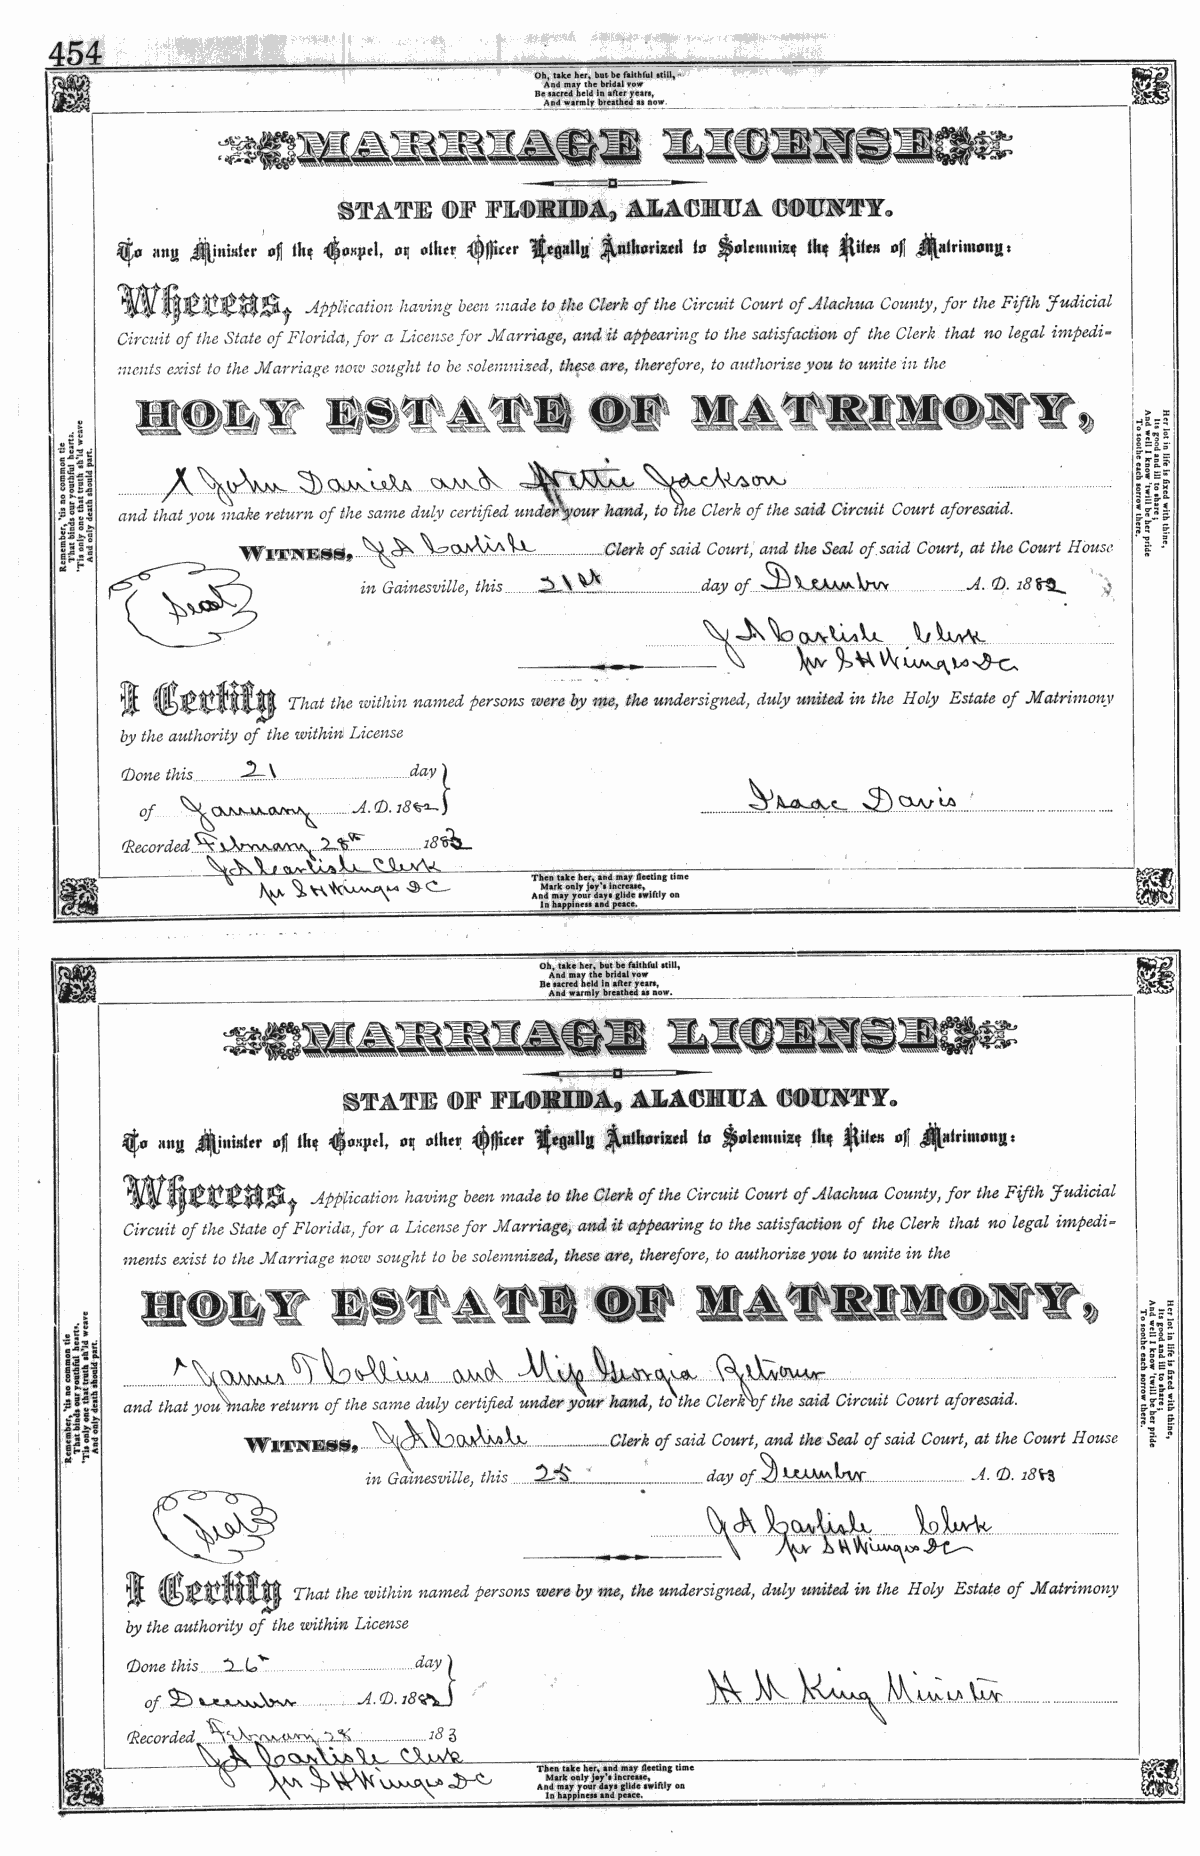 454
Oh, take her, but be faithful still,
And may the bridal vow
Be sacred held in after years,
And warmly breathed as now.
MARRIAGE LICENSE
STATE OF FLORIDA, ALACHUA COUNTY.
To any Minister of the Gospel, or other Officer Legally Authorized to Solemnize the Rites of Matrimony:
Whereas, Application having been made to the Clerk of the Circuit Court of Alachua County, for the Fifth Judicial
Circuit of the State of Florida, for a License for Marriage, and it appearing to the satisfaction of the Clerk that no legal impedi-
ments exist to the Marriage now sought to be solemnized, these are, therefore, to authorize you to unite in the
HOLY ESTATE OF MATRIMONY,
X John Daniels and Nettie Jackson
and that you make return of the same duly certified under your hand, to the Clerk of the said Circuit Court aforesaid.
WITNESS, J A Carlisle Clerk of said Court, and the Seal of said Court, at the Court House
in Gainesville, this 21st day of December A. D. 1882
Seal
J A Carlisle Clerk
pr S H Wienges DC
I Certify That the within named persons were by me, the undersigned, duly united in the Holy Estate of Matrimony
by the authority of the within License
Done this 21 day
of January A. D. 1882
Isaac Davis
Recorded February 28th 1883
J A Carlisle Clerk
pr S H Wienges DC
Remember, 'tis no common tie
That binds our youthful hearts,
'Tis only one that truth sh'ld weave
And only death should part.
Her lot in life is fixed with thine,
Its good and ill to share;
And well I know 'twill be her pride
To soothe each sorrow there.
Then take her, and may fleeting time
Mark only joy's increase,
And may your days glide swiftly on
In happiness and peace.
Oh, take her, but be faithful still,
And may the bridal vow
Be sacred held in after years,
And warmly breathed as now.
MARRIAGE LICENSE
STATE OF FLORIDA, ALACHUA COUNTY.
To any Minister of the Gospel, or other Officer Legally Authorized to Solemnize the Rites of Matrimony:
Whereas, Application having been made to the Clerk of the Circuit Court of Alachua County, for the Fifth Judicial
Circuit of the State of Florida, for a License for Marriage, and it appearing to the satisfaction of the Clerk that no legal impedi-
ments exist to the Marriage now sought to be solemnized, these are, therefore, to authorize you to unite in the
HOLY ESTATE OF MATRIMONY,
James T Collins and Miss Georgia
and that you make return of the same duly certified under your hand, to the Clerk of the said Circuit Court aforesaid.
WITNESS, J A Carlisle Clerk of said Court, and the Seal of said Court, at the Court House
in Gainesville, this 25 day of December A. D. 1883
Seal
J A Carlisle Clerk
pr S H Wienges DC
I Certify That the within named persons were by me, the undersigned, duly united in the Holy Estate of Matrimony
by the authority of the within License
Done this 26th day
of December A. D. 1882
H M King Minister
Recorded February 28 183
J A Carlisle Clerk
pr S H Wienges DC
Remember, 'tis no common tie
That binds our youthful hearts,
'Tis only one that truth sh'ld weave
And only death should part.
Her lot in life is fixed with thine,
Its good and ill to share;
And well I know 'twill be her pride
To soothe each sorrow there.
Then take her, and may fleeting time
Mark only joy's increase,
And may your days glide swiftly on
In happiness and peace.